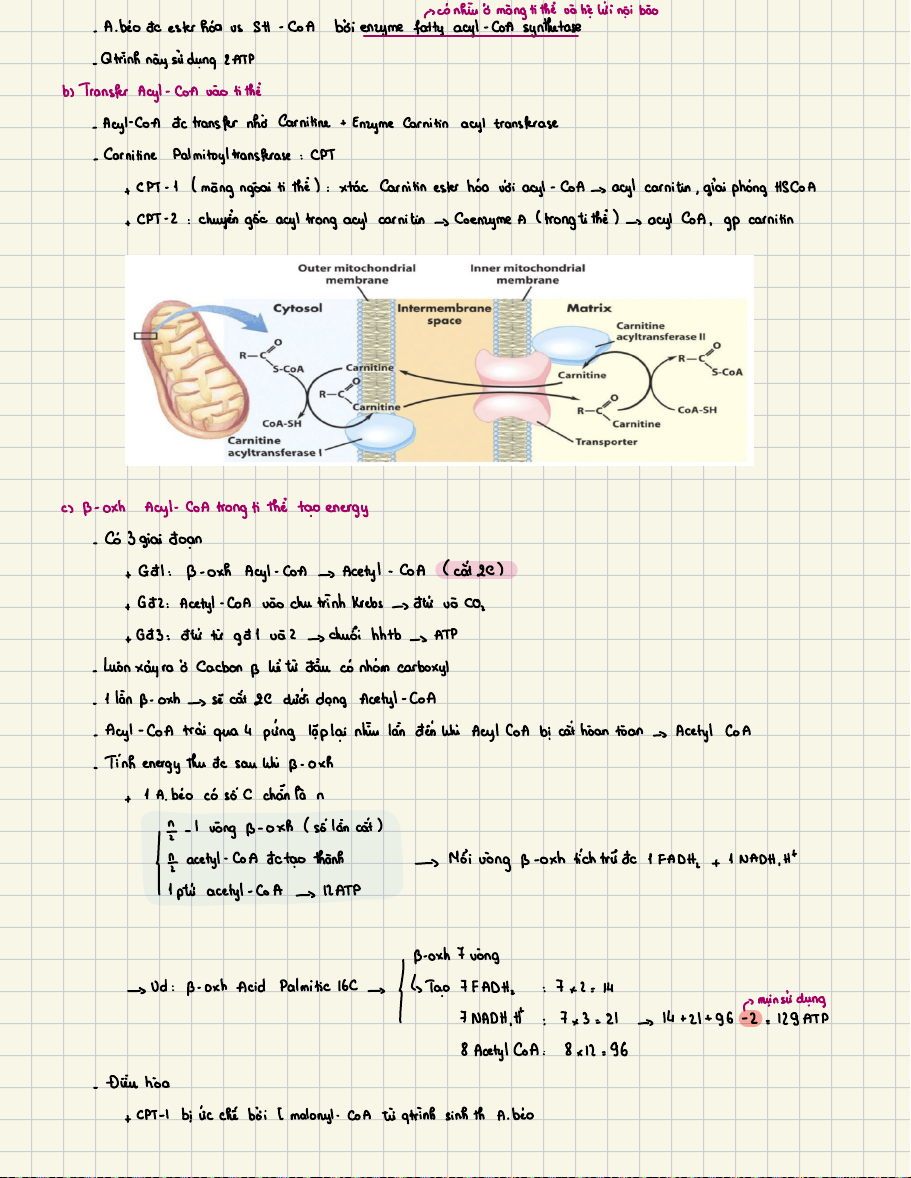 ↱ có nhiều ở màng ti thể và hệ lưới nội bào
- A.béo đc ester hóa vs SH - CoA bởi enzyme fatty acyl - CoA synthetase
- Qtrình này sử dụng 2ATP
b) Transfer Acyl - CoA vào ti thể
- Acyl-CoA đc transfer nhờ Carnitine + Enzyme Carnitin acyl transferase
- Carnitine Palmitoyl transferase : CPT
+ CPT-1 (màng ngoài ti thể) : xtác Carnitin ester hóa với acyl - CoA → acyl carnitin, giải phóng HSCoA
+ CPT-2 : chuyển gốc acyl trong acyl carnitin → Coenzyme A (trong ti thể) → acyl CoA, gp carnitin
Outer mitochondrial membrane
Inner mitochondrial membrane
Cytosol
Intermembrane space
Matrix
Carnitine acyltransferase II
R—C
O
S-CoA
Carnitine
R—C
O
Carnitine
CoA-SH
Carnitine acyltransferase I
Carnitine
R—C
O
S-CoA
R—C
O
Carnitine
CoA-SH
Transporter
c) β-oxh Acyl- CoA trong ti thể tạo energy
- Có 3 giai đoạn
+ Gđ1: β-oxh Acyl-CoA → Acetyl - CoA (cắt 2C)
+ Gđ2: Acetyl-CoA vào chu trình Krebs → đtử và CO₂
+ Gđ3: đtử từ gđ1 và 2 → chuỗi hhtb → ATP
- Luôn xảy ra ở Cacbon β kể từ đầu có nhóm carboxyl
- 1 lần β-oxh → sẽ cắt 2C dưới dạng Acetyl-CoA
- Acyl-CoA trải qua 4 pứng lặp lại nhiều lần đến khi Acyl CoA bị cắt hoàn toàn → Acetyl CoA
- Tính energy thu đc sau khi β-oxh
+ 1 A.béo có số C chẵn là n
n/2 - 1 vòng β-oxh (số lần cắt)
n/2 acetyl-CoA đc tạo thành → Mỗi vòng β-oxh tích trữ đc 1 FADH₂ + 1 NADH,H⁺
1 ptử acetyl-CoA → 12ATP
β-oxh 7 vòng
→ Vd: β-oxh Acid Palmitic 16C → ↳ Tạo 7 FADH₂ : 7 x 2 = 14
↱ mjn sử dụng
7 NADH,H⁺ : 7 x 3 = 21 → 14 + 21 + 96 -2 = 129 ATP
8 Acetyl CoA : 8 x 12 = 96
- Điều hòa
+ CPT-1 bị ức chế bởi [ malonyl- CoA từ qtrình sinh th A.béo